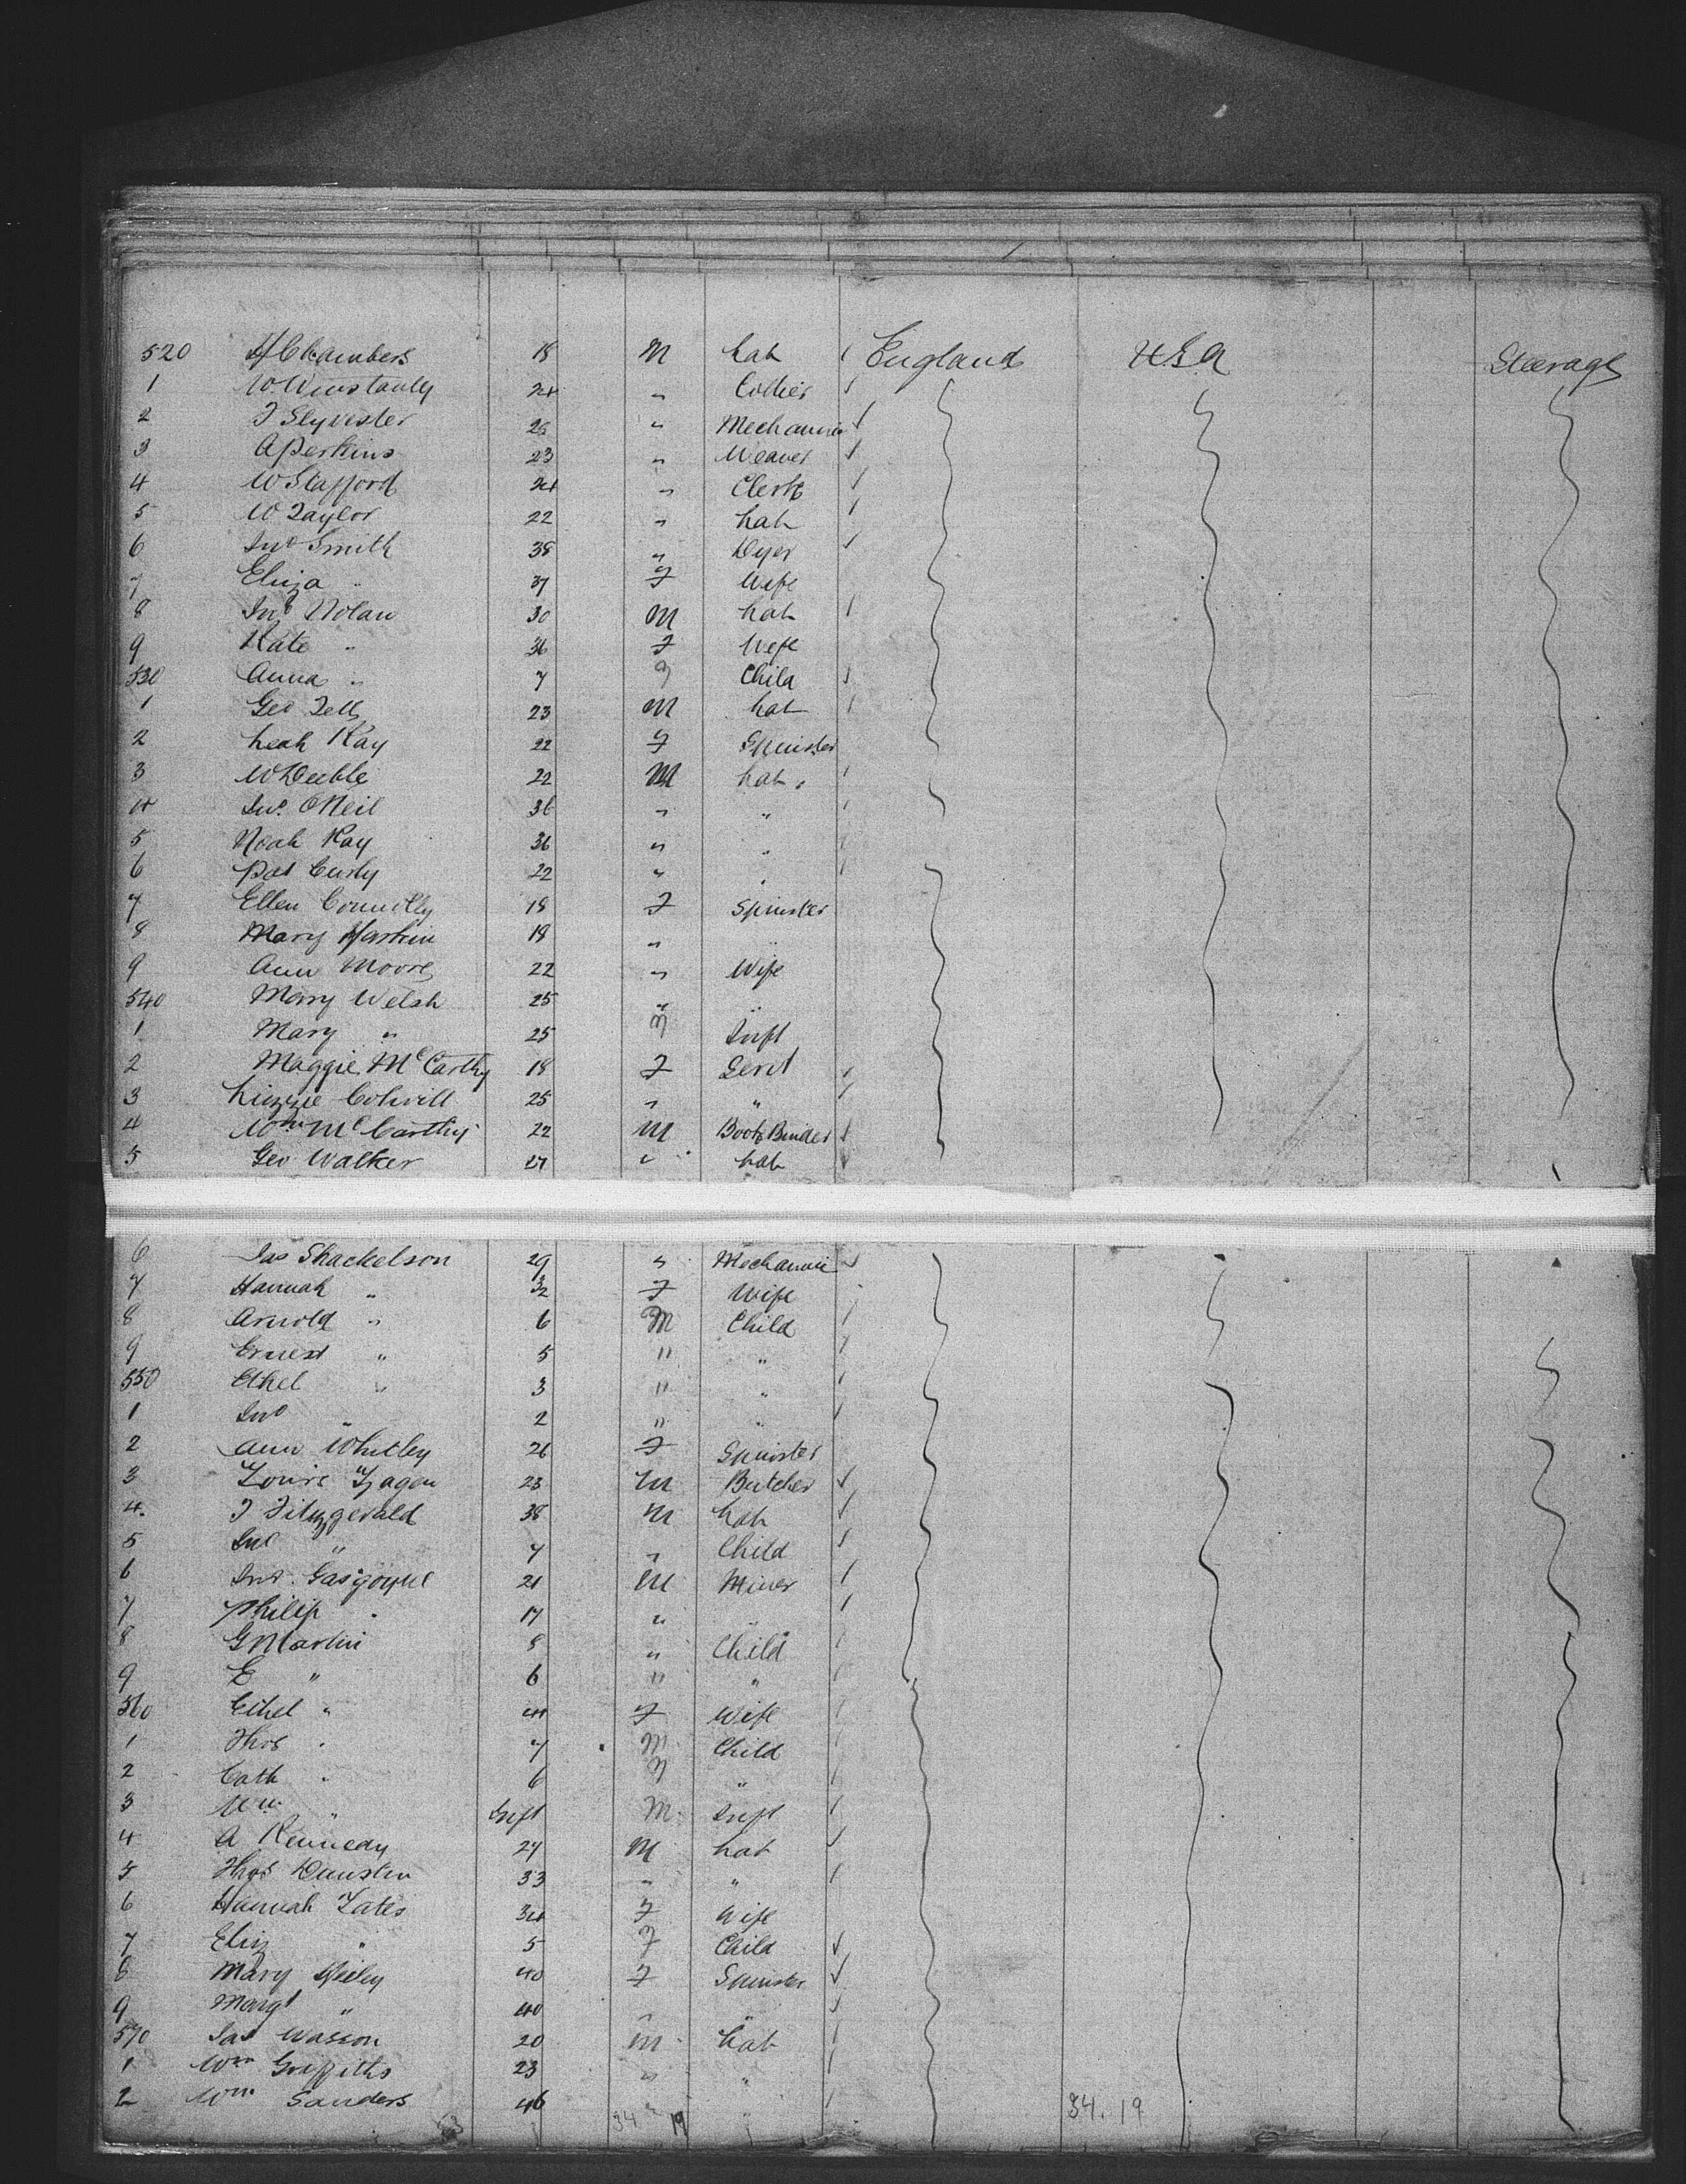 520 H Chambers 18 M Lab England U.S.A Steerage
1 W Winstanly 24 " Collier
2 T Slyvester 28 " Mechannic
3 A Perkins 23 " Weaver
4 W Stafford 24 " Clerk
5 W Taylor 22 " Lab
6 Jno Smith 38 " Dyer
7 Eliza " 37 F Wife
8 Jno Nolan 30 M Lab
9 Kate " 36 F Wife
530 Anna " 7 F Child
1 Geo 23 M Lab
2 Leah Kay 22 F Spinster
3 W Deeble 22 M Lab
4 Jno. ONeil 36 " "
5 Noah Kay 36 " "
6 Pat Curly 22 " "
7 Ellen Connolly 18 F Spinster
8 Mary 18 " "
9 Ann Moore 22 " Wife
540 Mary Welsh 25 " "
1 Mary " 25 Inft
2 Maggie McCarthy 18 F Servt
3 Lizzie 25 " "
4 Wm McCarthy 22 M Book Binder
5 Geo Walker 27 " Lab
6 Jas Shackelson 29 " Mechannic
7 Hannah " 32 F Wife
8 Arnold " 6 M Child
9 Ernest " 5 " "
550 Ethel " 3 " "
1 Jno " 2 " "
2 Ann Whitley 26 F Spinster
3 Louis 23 M Butcher
4 T Fitzgerald 38 M Lab
5 Jno " 7 " Child
6 Jno. Gasgoyne 21 M Miner
7 Philip " 17 " "
8 G Martin 8 " Child
9 E " 6 " "
560 Ethel " F Wife
1 Thos " 7 M Child
2 Cath " 6 F "
3 Wm " Inft M Inft
4 A Kennedy 27 M Lab
5 Thos Dunstin 33 " "
6 Hannah Yates 34 F Wife
7 Eliz " 5 F Child
8 Mary 40 F Spinster
9 Margt " 40 " "
570 Jas Wasson 20 M Lab
1 Wm Griffiths 23 " "
2 Wm Sanders 46 " "
34 19 34.19